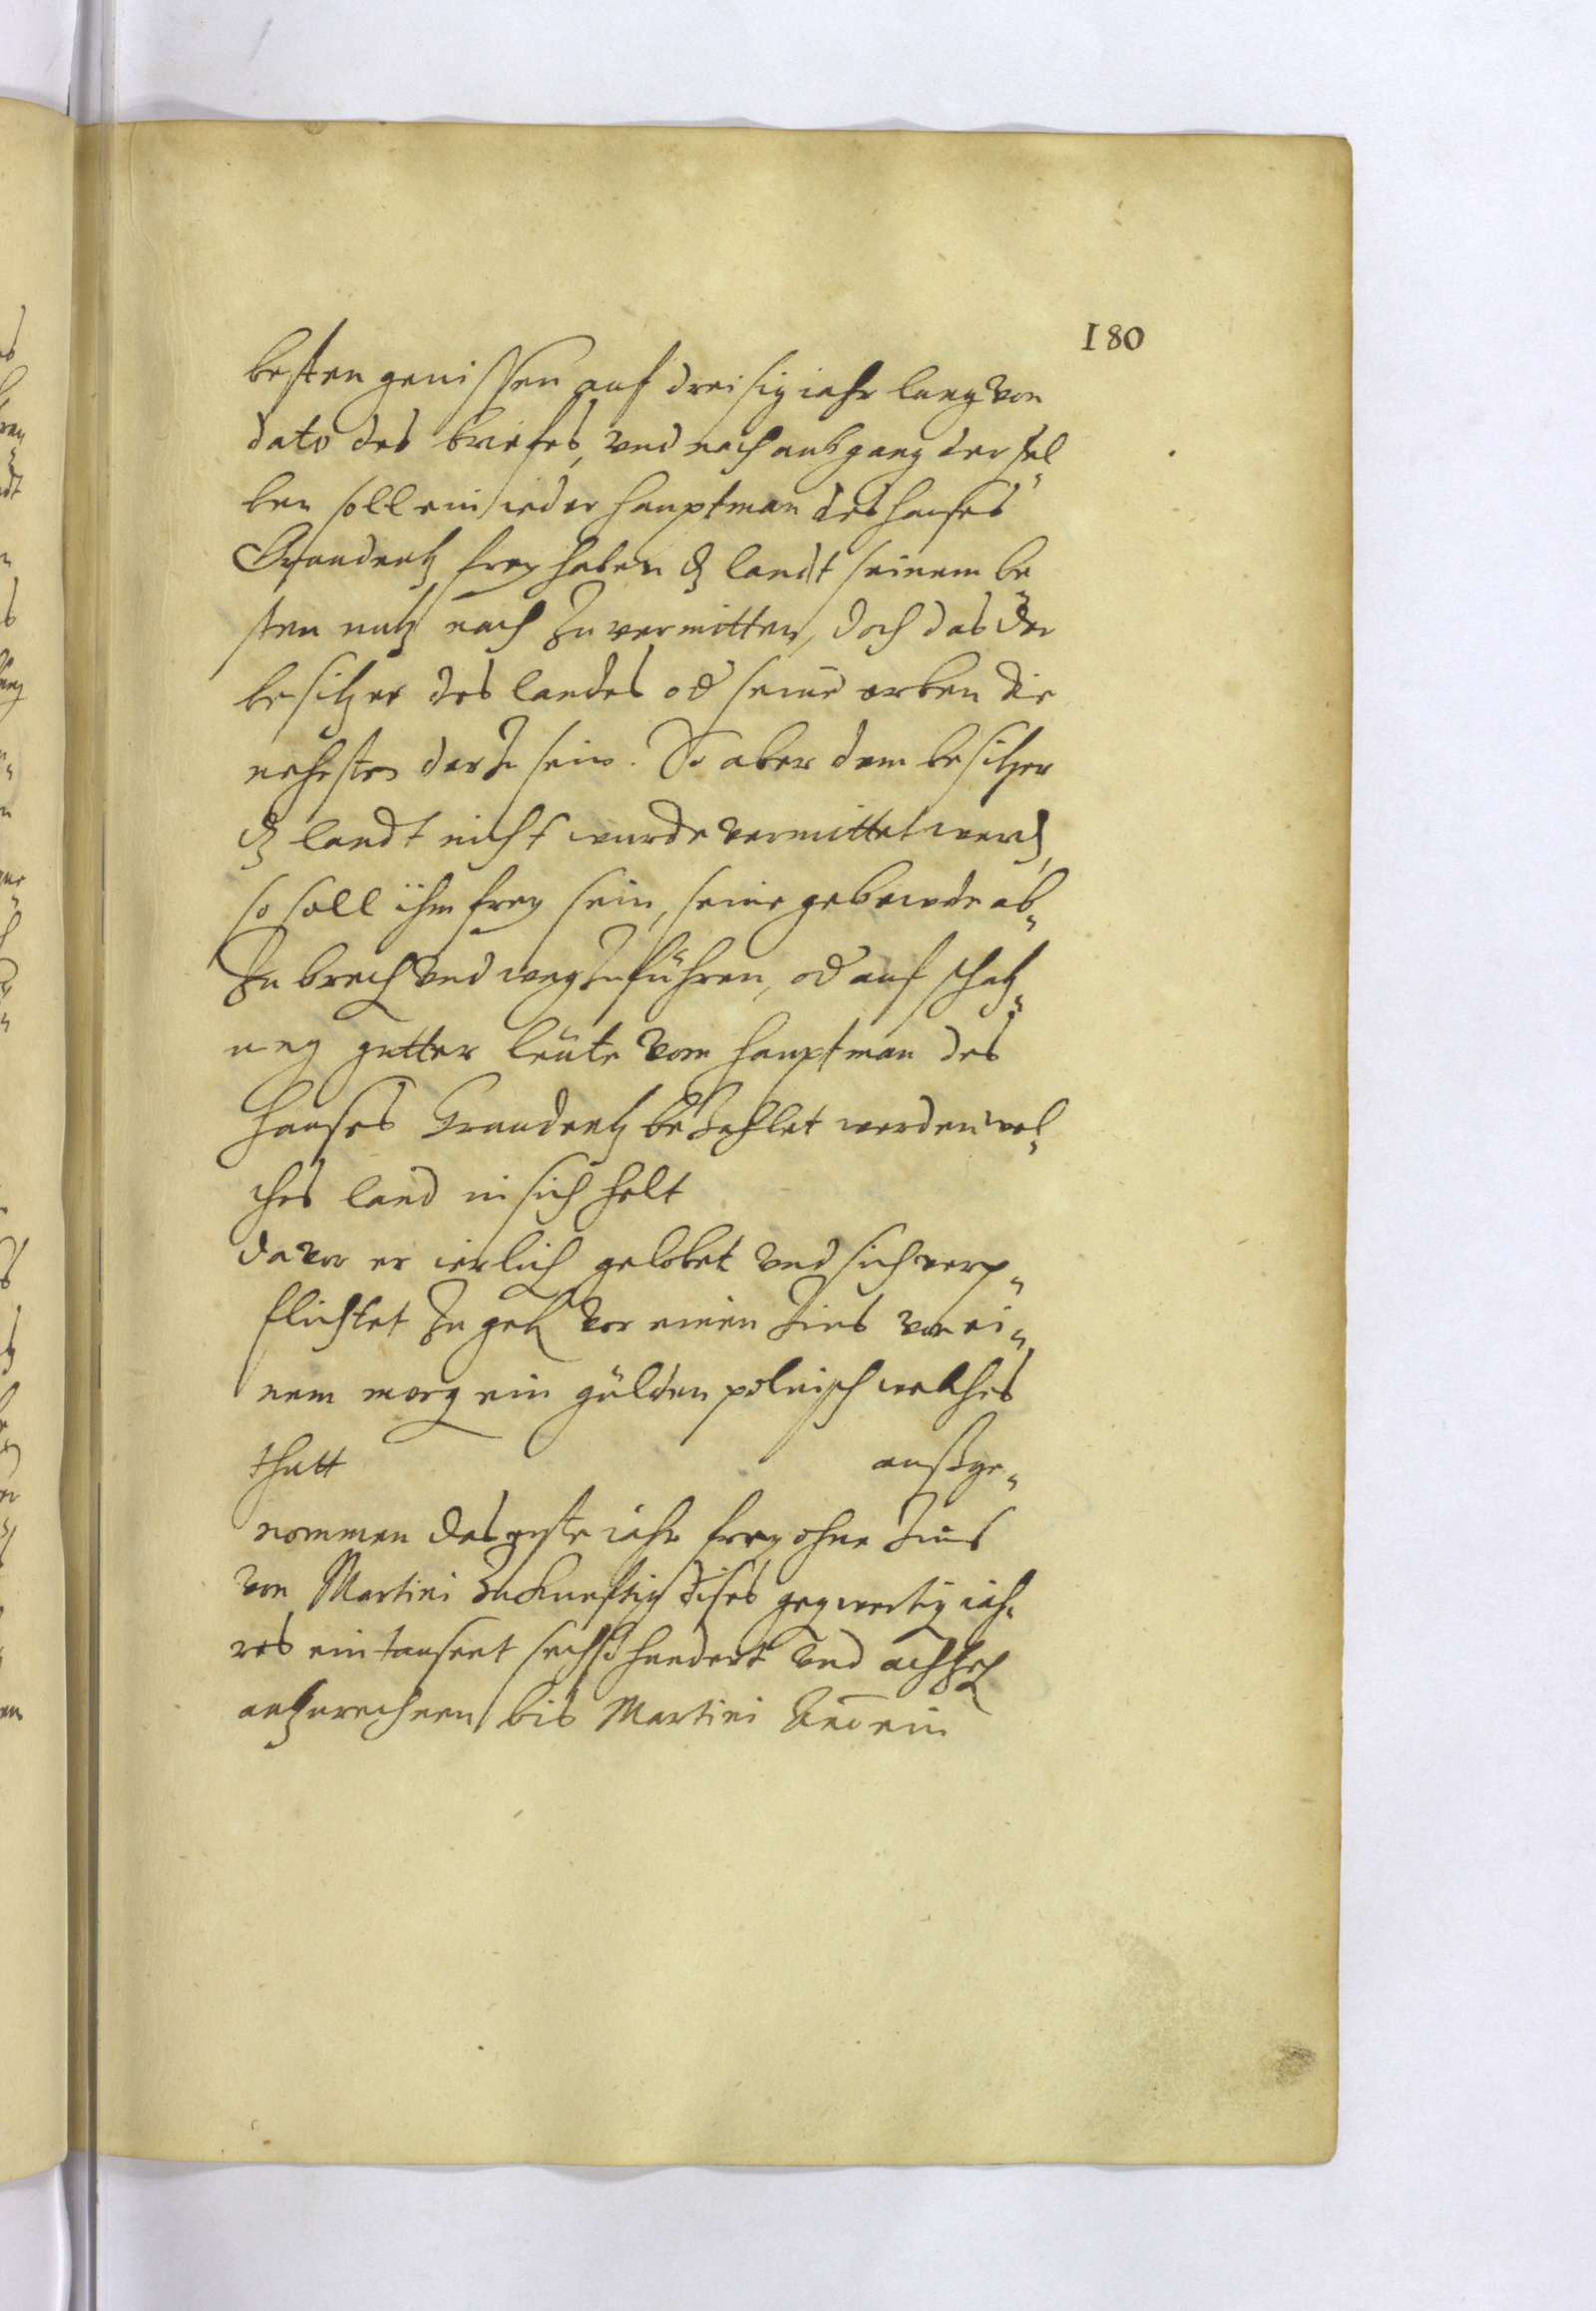 180
besten genissen auf dreisig iahr lang von
dato des briefes, und nach außgang dersel„
ben soll ein ieder hauptman des hauses
Graudentz frey haben dz landt seinem be„
sten nutz nach zu vermitten, doch das der
besitzer des landes od seine erben die
nehesten darzu sein. So aber dem besitzer
dz landt nicht wurde vermittet werd,
so soll ihm frey sein, seine gebewde ab„
zu brech und weg zu führen, od auf schatz„
ung gutter leüte vom hauptman des
hauses Graudentz bezahlet werden wel„
ches land in sich helt
davor er ierlich gelobet und sich verp„
flichtet zu geb vor einen zins von ei„
nem morg ein gülden polnisch welches
thutt außge„
nommen das erste iahr frey ohne zins
von Martini zukunfftig dises gegwertig iah„
res ein tausent sechß hundert und achtzeh
anzurechnen bis Martini ein